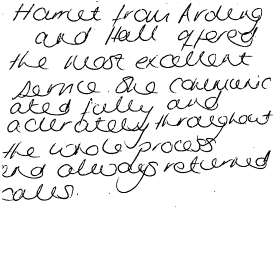 Harriet from Arding
and Hall offered
the most excellent
service. She communic
ated fully and
accurately throughout
the whole process
and always returned
calls.